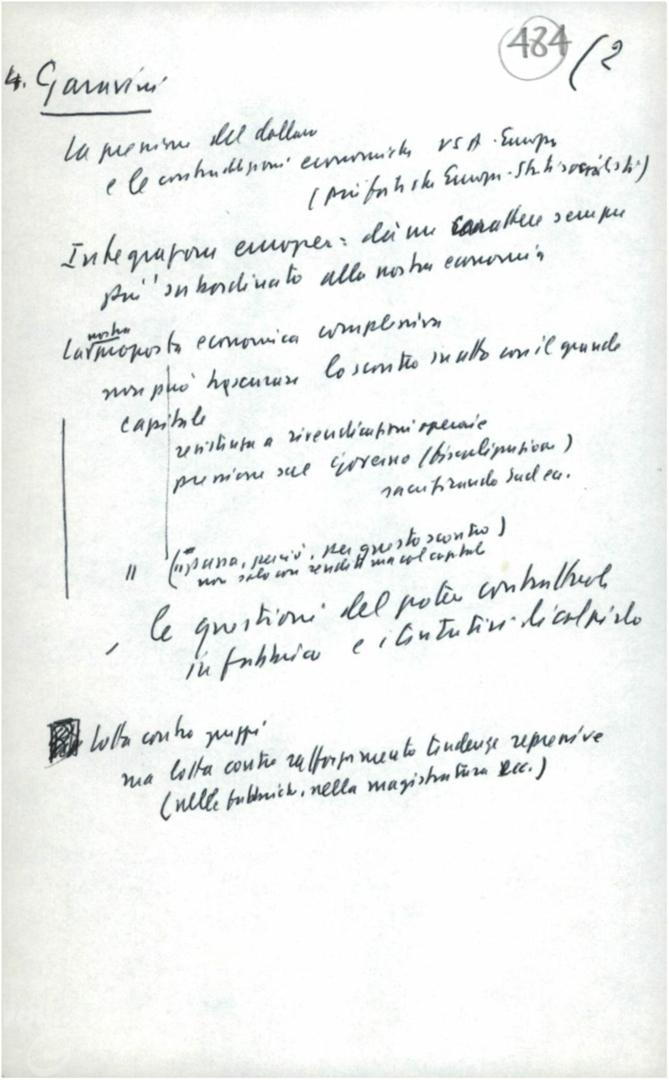 484 (2
4. Garavini
La pressione del dollaro
e le contraddizioni economiche USA-Europa
(più forti che Europa-Stati socialisti)
Integrazione europea: dà un carattere sempre
più subordinato alla nostra economia
La nostra proposta economica complessiva
non può trascurare lo scontro in atto con il grande
capitale
resistenza a rivendicazioni operaie
pressione sul governo (fiscalizzazione)
sacrificando Sud ecc.
" ("passa, perciò, per questo scontro)
non solo con rendite ma col capitale
le questioni del potere contrattuale
in fabbrica e i tentativi di colpirlo
Lotta contro gruppi
ma lotta contro rafforzamento tendenze repressive
(nelle fabbriche, nella magistratura ecc.)